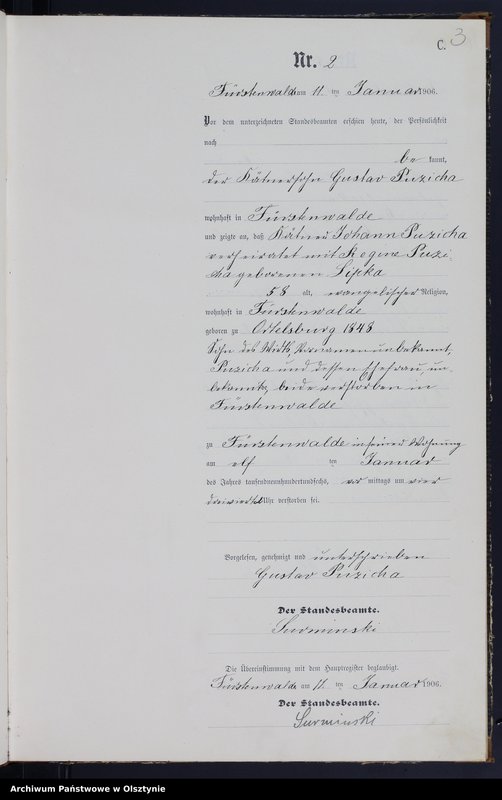 C. 3
Nr. 2
Fürstenwalde am 11 ten Januar 1906.
Vor dem unterzeichneten Standesbeamten erschien heute, der Persönlichkeit
nach
be kannt,
der Kätnersohn Gustav Puzicha
wohnhaft in Fürstenwalde
und zeigte an, daß Kätner Johann Puzicha
verheiratet mit Regine Puzi-
cha geborenen Lipka
58 alt, evangelischer Religion,
wohnhaft in Fürstenwalde
geboren zu Ortelsburg 1848
Sohn des Wirth, Vornamen unbekannt,
Puzicha und dessen Ehefrau, un-
bekannt, beide verstorben in
Fürstenwalde
zu Fürstenwalde in seiner Wohnung
am elf ten Januar
des Jahres tausendneunhundertundsechs, vor mittags um vier
dreiviertel Uhr verstorben sei.
Vorgelesen, genehmigt und unterschrieben
Gustav Puzicha
Der Standesbeamte.
Surminski
Die Übereinstimmung mit dem Hauptregister beglaubigt.
Fürstenwalde am 11. ten Januar 1906.
Der Standesbeamte.
Surminski
Archiwum Państwowe w Olsztynie